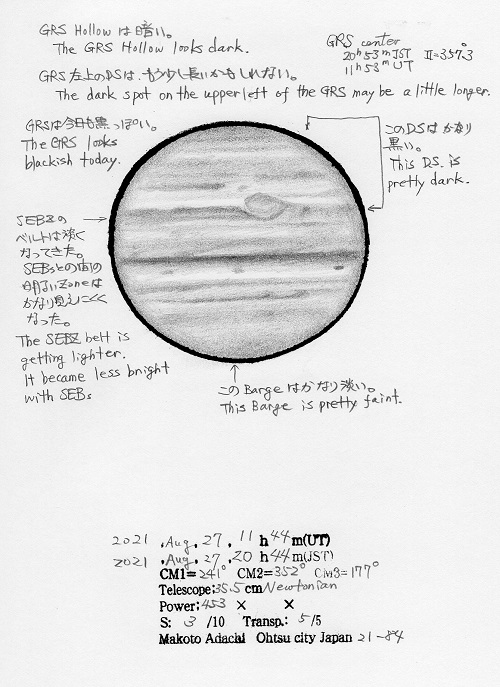 GRS Hollow は暗い。
The GRS Hollow looks dark.
GRS center
20h 53m JST II=357.3°
11h 53m UT
GRS 左上のDSは、もう少し長いかもしれない。
The dark spot on the upper left of the GRS may be a little longer.
GRSは今日も黒っぽい。
The GRS looks
blackish today.
このDSはかなり
黒い。
This DS. is
pretty dark.
SEBZの
ベルトは淡く
なってきた。
SEBsとの間の
明るいZoneは
かなり見えにくく
なった。
The SEBZ belt is
getting lighter.
It became less bright
with SEBs
このBargeはかなり淡い。
This Barge is pretty faint.
2021 .Aug. 27 . 11 h 44 m(UT)
2021 .Aug. 27 .20 h 44 m(JST)
CM1=241° CM2=352° CM3=177°
Telescope;35.5 cm Newtonian
Power;453 × ×
S: 3 /10 Transp.: 5 /5
Makoto Adachi Ohtsu city Japan 21-84